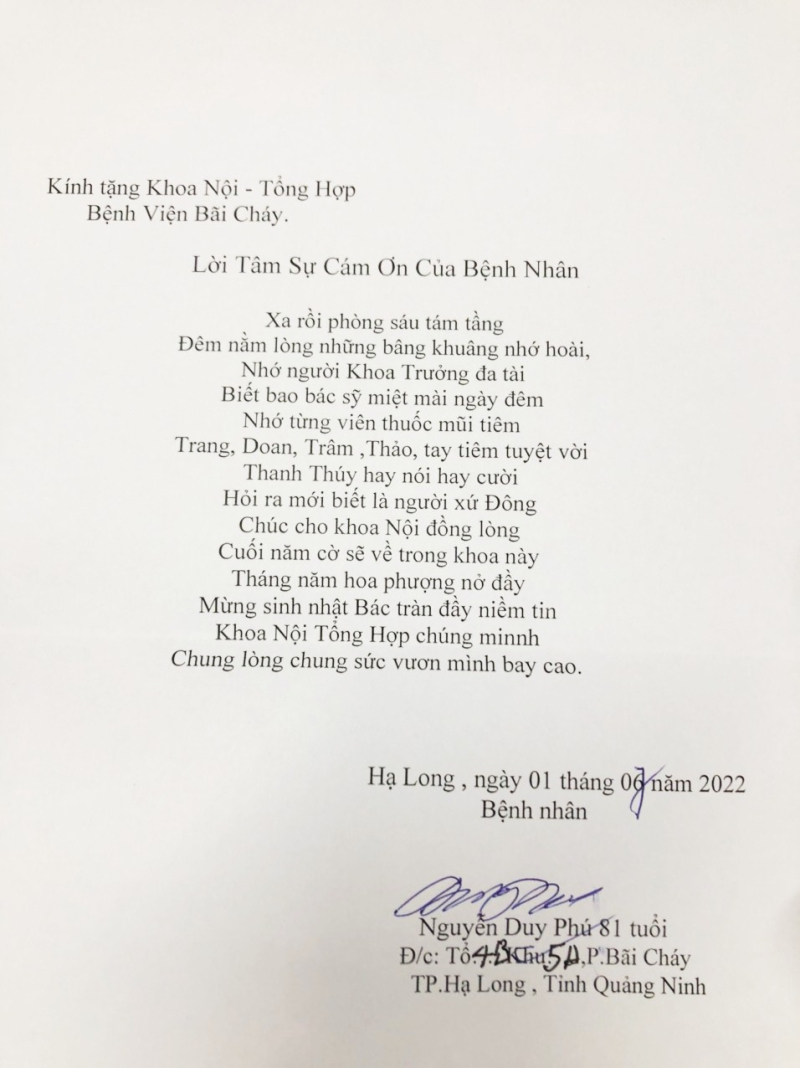 Kính tặng Khoa Nội - Tổng Hợp
Bệnh Viện Bãi Cháy.
Lời Tâm Sự Cám Ơn Của Bệnh Nhân
Xa rồi phòng sáu tám tầng
Đêm nằm lòng những bâng khuâng nhớ hoài,
Nhớ người Khoa Trưởng đa tài
Biết bao bác sỹ miệt mài ngày đêm
Nhớ từng viên thuốc mũi tiêm
Trang, Doan, Trâm ,Thảo, tay tiêm tuyệt vời
Thanh Thúy hay nói hay cười
Hỏi ra mới biết là người xứ Đông
Chúc cho khoa Nội đồng lòng
Cuối năm cờ sẽ về trong khoa này
Tháng năm hoa phượng nở đầy
Mừng sinh nhật Bác tràn đầy niềm tin
Khoa Nội Tổng Hợp chúng minnh
Chung lòng chung sức vươn mình bay cao.
Hạ Long , ngày 01 tháng năm 2022
Bệnh nhân
Nguyễn Duy Phú 81 tuổi
Đ/c: Tổ 4B Khu 5A,P.Bãi Cháy
TP.Hạ Long , Tỉnh Quảng Ninh